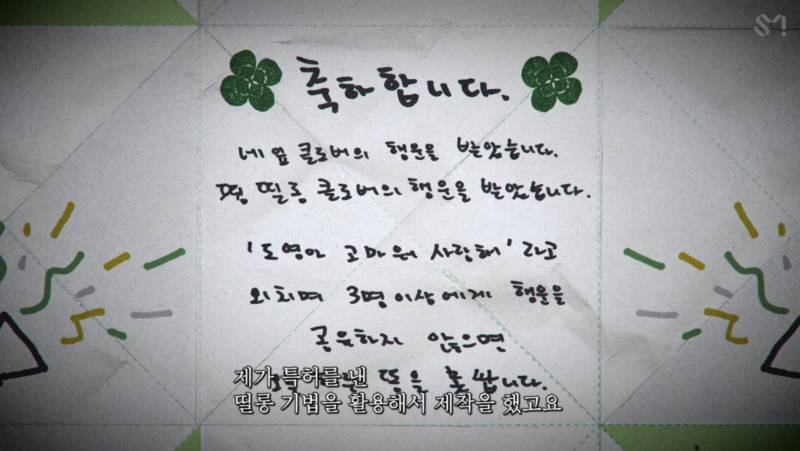 SM!
축하합니다.
네잎 클로버의 행운을 받았습니다.
띨롱 클로버의 행운을 받았습니다.
'도영아 고마워 사랑해'라고
외치며 3명 이상에게 행운을
공유하지 않으면
똥을 못 쌉니다.
제가 특허를 낸
띨롱 기법을 활용해서 제작을 했고요